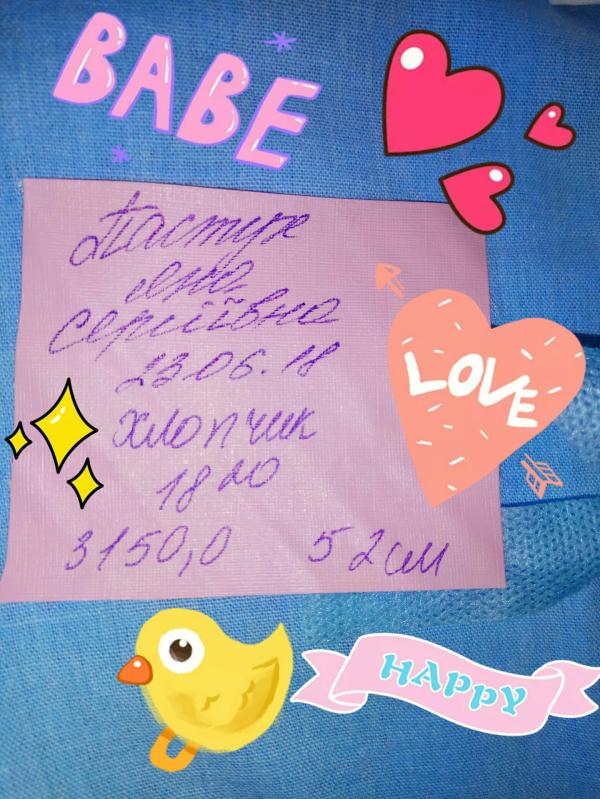 BABE
Пастух
Яна
Сергіївна
23.06.18
хлопчик
18 20
3150,0 52 см
LOVE
HAPPY